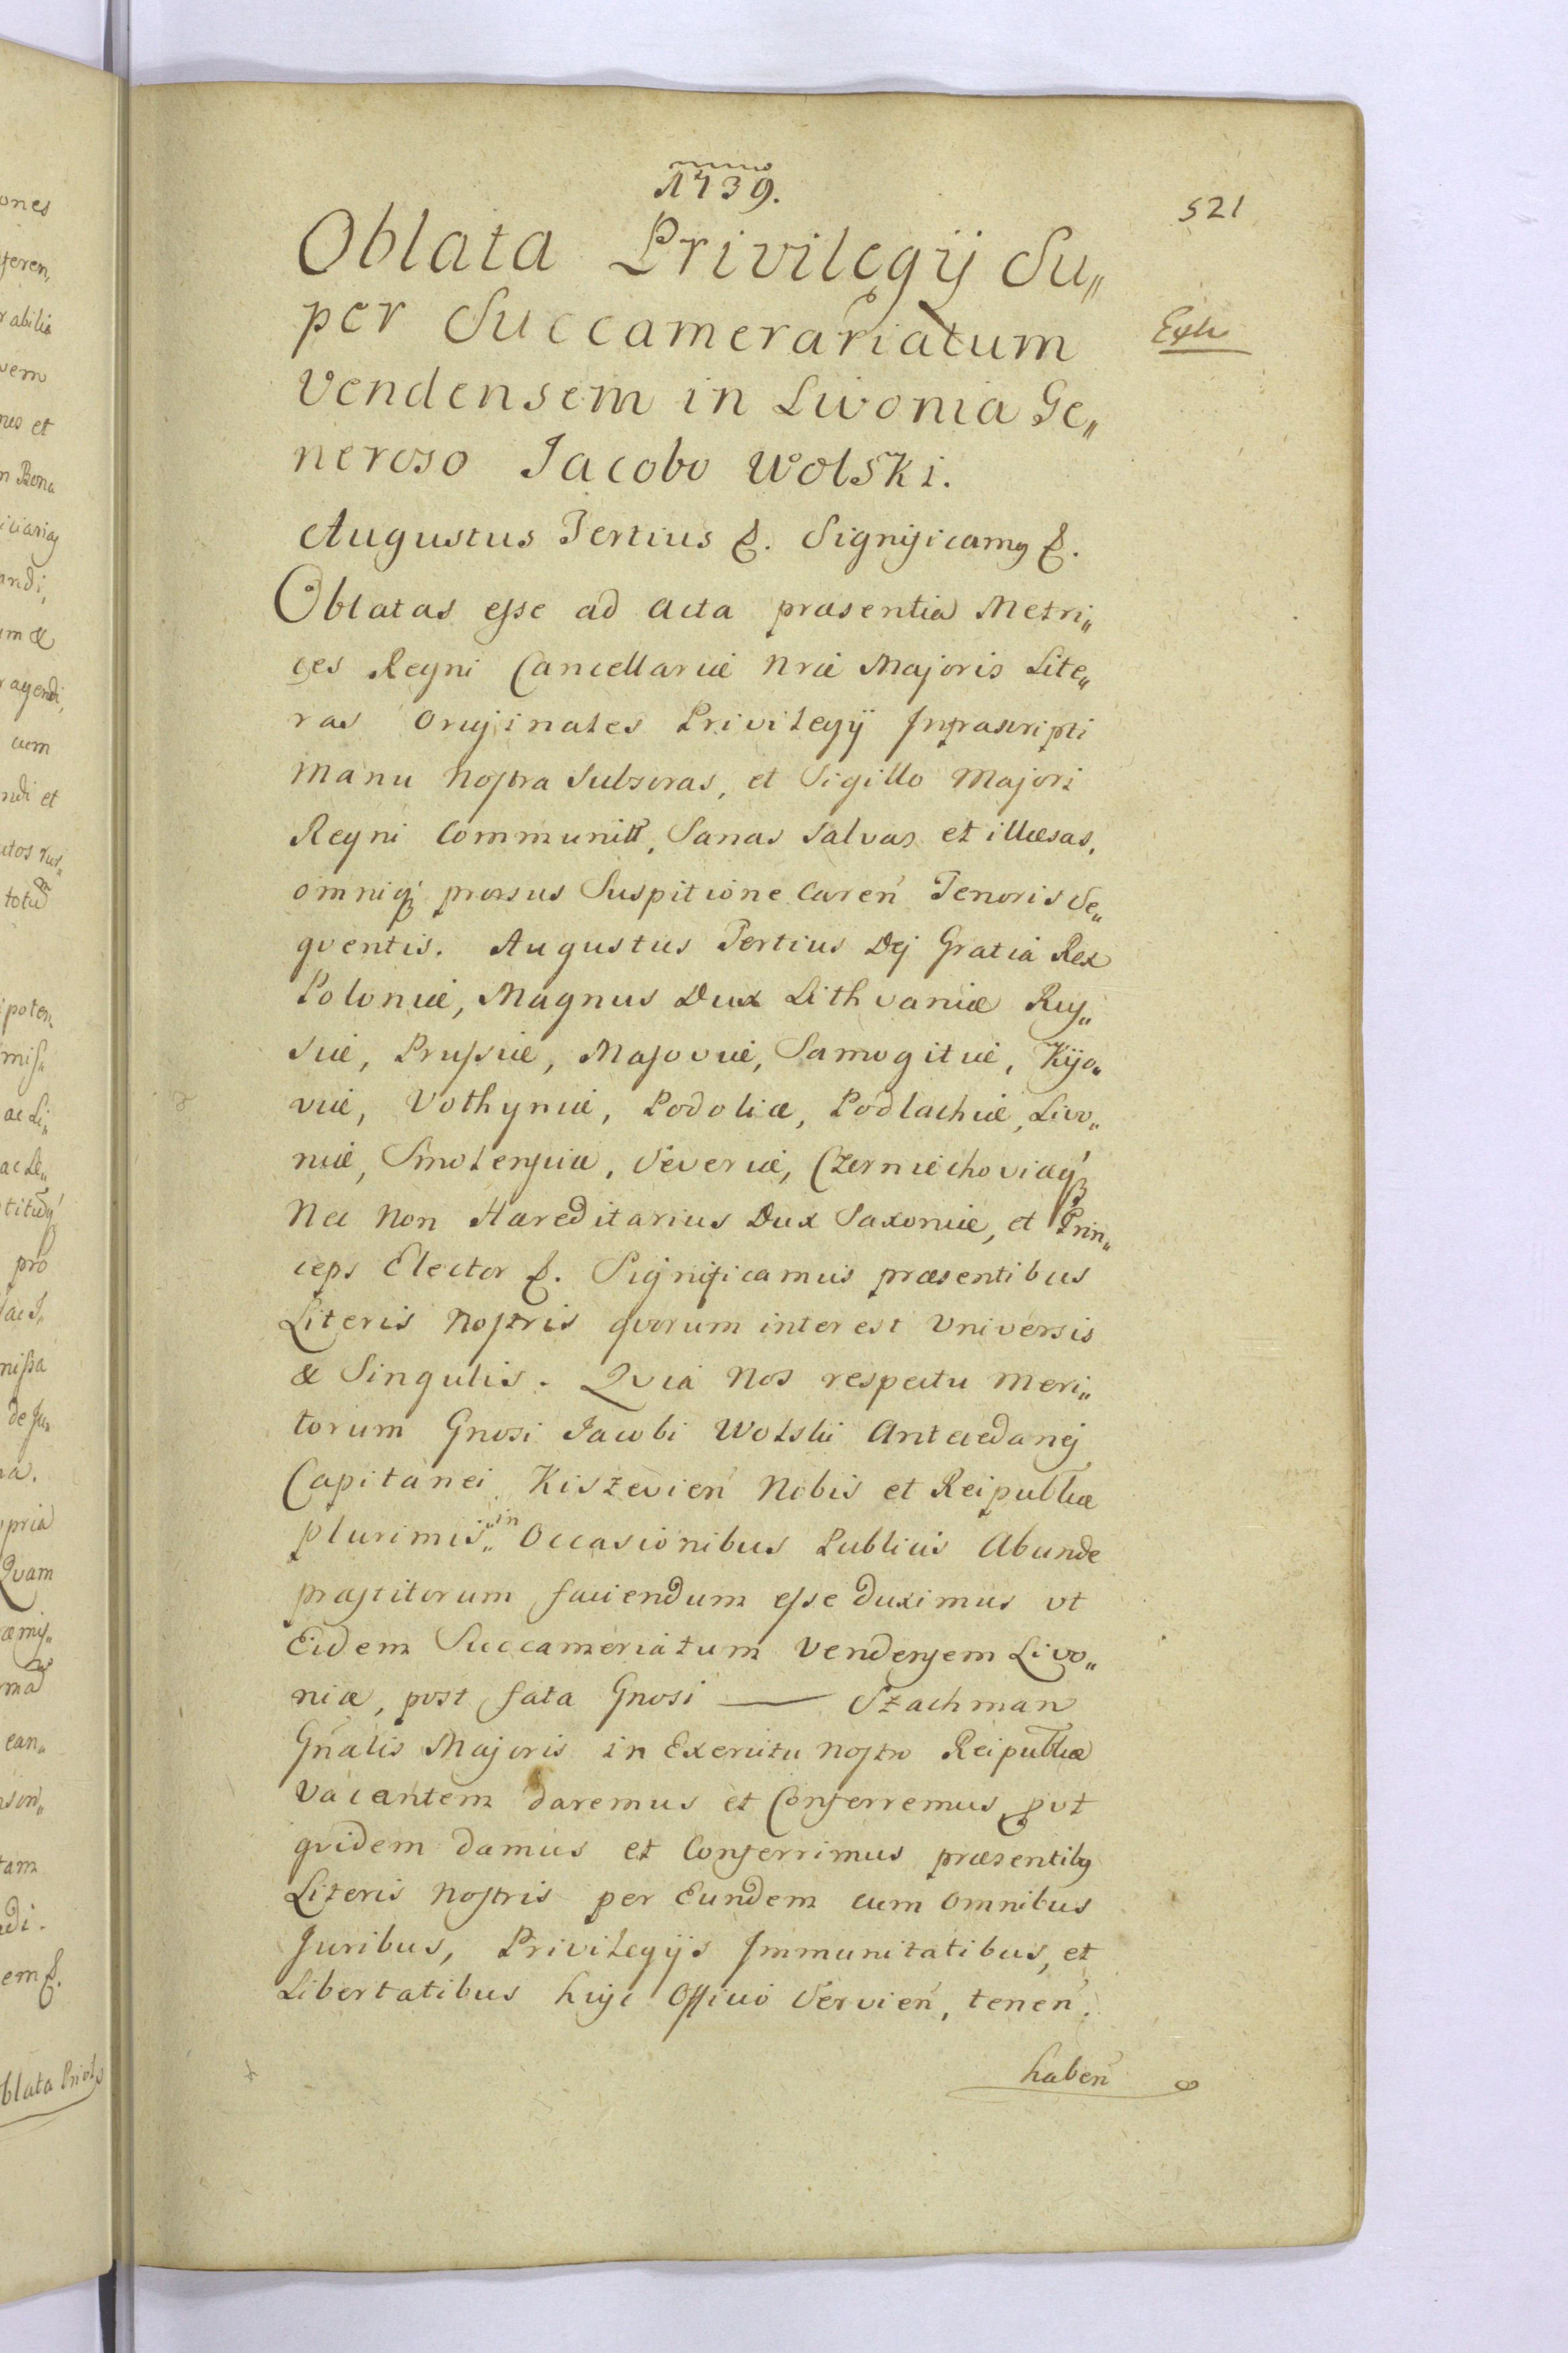 1739.
521
Oblata Privilegij Su„
per Succamerariatum
Extr
Vendensem in Livonia Ge„
neroso Jacobo Wolski.
Augustus Tertius &. Significamq &.
Oblatas esse ad Acta præsentia Metri„
ces Regni Cancellariæ Nræ Majoris Lite„
ras Originales Privilegij Infrascripti
Manu Nostra Subscras, et Sigillo Majori
Regni Communitt, Sanas Salvas et illæsas,
omniq3 prorsus Suspitione Careń Tenoris Se„
qventis. Augustus Tertius Dej Gratia Rex
Poloniæ, Magnus Dux Lithvaniæ Rus„
siæ, Prussiæ, Masoviæ, Samogitiæ, Kijo„
viæ, Volhyniæ, Podoliæ, Podlachiæ, Livo„
niæ, Smolensiæ, Severiæ, Czerniechoviæq3
Nec Non Hæreditarius Dux Saxoniæ, et Prin„
ceps Elector &. Significamus præsentibus
Literis Nostris qvorum interest Universis
& Singulis. Qvia Nos respectu Meri„
torum Gnosi Jacobi Wolski Antecedanej
Capitanei Kiszevień Nobis et Reipubliæ
plurimis „in Occasionibus Publicis Abunde
præstitorum faciendum esse duximus ut
Eidem Succameriatum Vendensem Livo„
niæ, post fata Gnosi — Szachman
Gńalis Majoris in Exercitu Nostro Reipubliæ
Vacantem daremus et Conferremus, put
qvidem damus et Conferrimus præsentibq
Literis Nostris per Eundem cum Omnibus
Juribus, Privilegijs Immunitatibus, et
Libertatibus hujc Officio Servień, teneń.
habeń